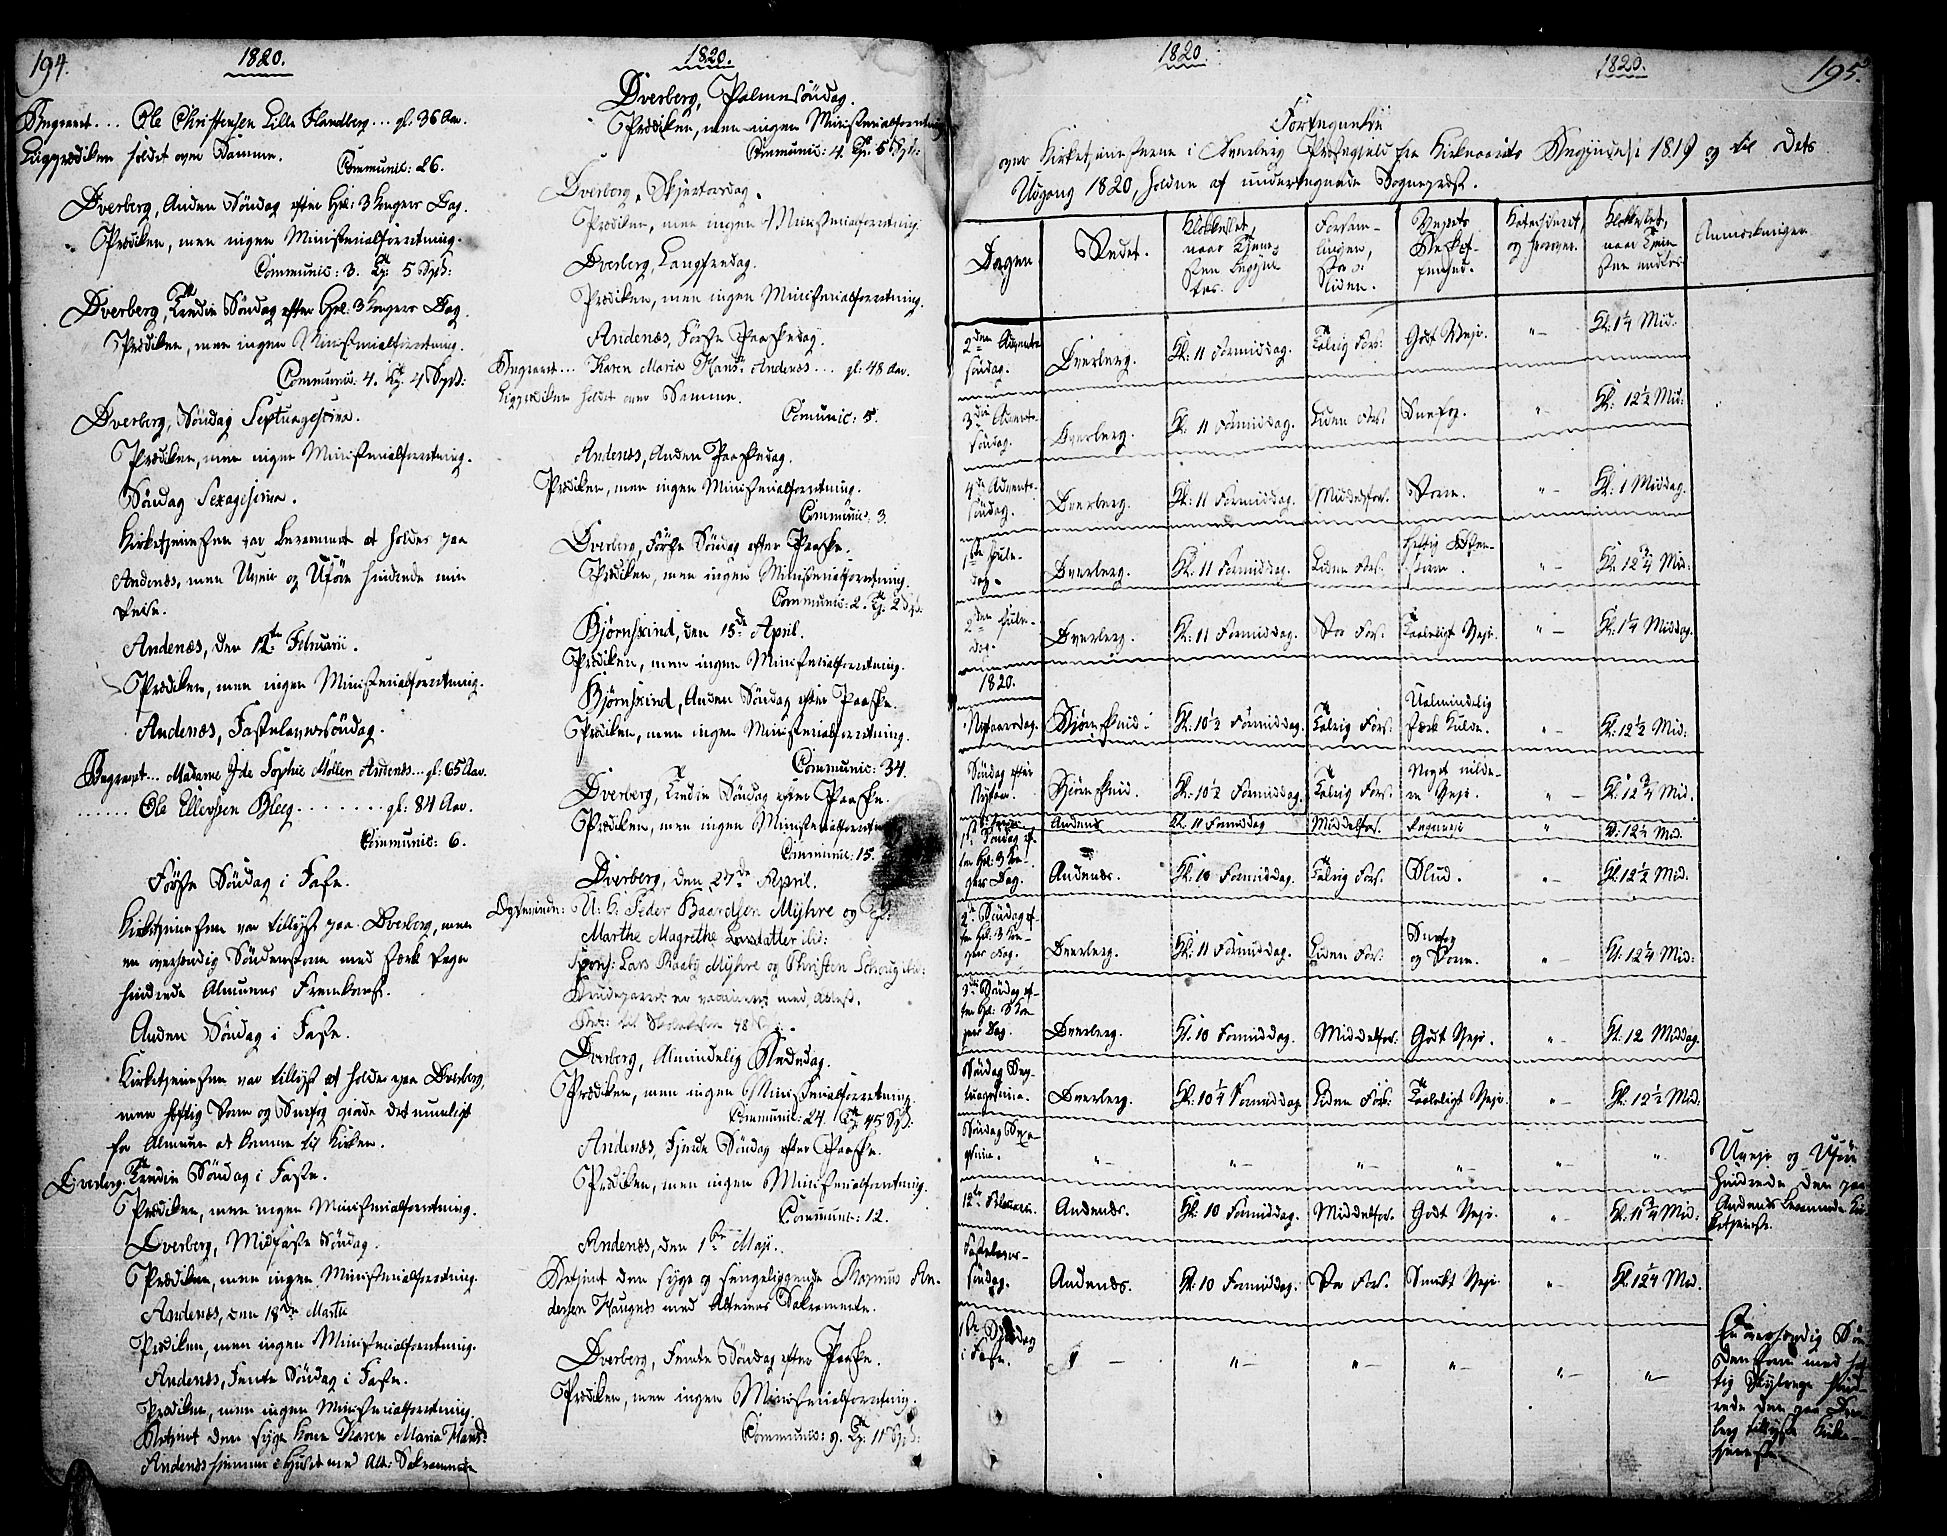 194.
1820.
Begravet... Ole Christensen Lille Flandberg... gl: 36 Aar.
Liigprædiken holdet over Samme.
Communic: 26.
Dverberg, Anden Söndag efter Hel: 3 Kongers Dag.
Prædiken, men ingen Ministerialforretning.
Communic: 3.
Dverberg, Tredie Söndag efter Hel: 3 Kongers Dag.
Prædiken, men ingen Ministerialforretning.
Communic: 4.
Dverberg, Söndag Septuagesima.
Prædiken, men ingen Ministerialforretning.
Söndag Sexagesima.
Kirketjenesten var berammet at holdes paa
Andenæs, men Uveir og Uföre hindrede min
Reise.
Andenæs, den 12te Februarii.
Prædiken, men ingen Ministerialforretning.
Andenæs, Fastelavnssöndag.
Begravet... Madame Ide Sophie Möller Andenæs... gl: 65 Aar.
...... Ole Ellevsen Bleeg........ gl: 84 Aar.
Communic: 6.
Förste Söndag i Faste.
Kirketjenesten var tillyst paa Dverberg, men
en overhændig Söndenstorm med stærk Regn
hindrede Almuens Fremkomst.
Anden Söndag i Faste.
Kirketjenesten var tillyst at holdes paa Dverberg,
men heftig Storm og Snefog giorde det umuligt
for Almuen at komme til Kirken.
Dverberg, Tredie Söndag i Faste.
Prædiken, men ingen Ministerialforretning.
Dverberg, Midfaste Söndag.
Prædiken, men ingen Ministerialforretning.
Andenæs, den 18de Martii
Prædiken, men ingen Ministerialforretning.
Andenæs, Femte Söndag i Faste.
Prædiken, men ingen Ministerialforretning.
Betjent den syge Kone Karen Maria Hansd:
Andenæs hiemme i Huset med Alt: Sakramente
1820.
Dverberg, Palmesöndag.
Prædiken, men ingen Ministerialforretning
Communic: 4.
Dverberg, Skjertorsdag.
Prædiken, men ingen Ministerialforretning.
Dverberg, Langfredag.
Prædiken, men ingen Ministerialforretning.
Andenæs, Förste Paaskedag.
Begravet... Karen Maria Hansd: Andenæs... gl: 48 Aar.
Liigprædiken holdet over Samme.
Comunic: 5.
Andenæs, Anden Paaskedag.
Prædiken, men ingen Ministerialforretning.
Communic: 3.
Dverberg, Förste Söndag efter Paaske.
Prædiken, men ingen Ministerialforretning.
Communic: 2.
Björnskind, den 15de April.
Prædiken, men ingen Ministerialforretning.
Björnskind, Anden Söndag efter Paaske.
Prædiken, men ingen Ministerialforretning.
Communic: 34.
Dverberg, Tredie Söndag efter Paaske.
Prædiken, men ingen Ministerialforretning
Communic: 15.
Dverberg, den 27de April.
Copulerede: U: K: Peder Baardsen Myhre og
Marthe Magrethe ibid:
Spons: Lars Raaby Myhre og Christen ibid:
Brudeparret er vaccineret med Attest.
Dverberg, Almindelig Bededag.
Prædiken, men ingen Ministerialforretning.
Communic: 24.
Andenæs, Fjerde Söndag efter Paaske.
Prædiken, men ingen Ministerialforretning.
Communic: 12.
Andenæs, den 1ste Maji.
Betjent den syge og sengeliggende Rasmus An-
dersen Haugnæs med Alterens Sakramente.
Dverberg, Femte Söndag efter Paaske.
Prædiken, men ingen Ministerialforretning.
Communic: 9.
1820
1820.
195.
Fortegnelse
over Kirketjenesterne i Dverberg Præstegield fra Kirkeaarets Begyndelse 1819 og til dets
Udgang 1820, holdne af undertegnede Sognepræst.
Dagen | Stedet. | Klokkeslet, naar Tjenesten begyndtes. | Forsamlingen, stor o: liden. | Veirets Beskaffenhed. | Katechiseret, og hvorover. | Klokkeslet, naar Tjenesten endtes | Anmerkninger
2den Advents Söndag. | Dverberg. | Kl: 11 Formiddag. | Talrig Fors: | Godt Veir. | „ – | Kl: 1¼ Mid:
3die Advents Söndag. | Dverberg. | Kl: 11 Formiddag. | Liden Fors: | Snefog. | „ – | Kl: 12½ Mid:
4de Advents Söndag. | Dverberg. | Kl: 11 Formiddag. | Middelfors. | Storm. | „ – | Kl: 1 Middag.
1ste Juledag. | Dverberg. | Kl: 11 Formiddag. | Liden Fors: | Heftig Östenstorm. | „ – | Kl: 12¾ Mid:
2den Juledag. | Dverberg. | Kl: 11 Formiddag. | Stor Fors. | Taaleligt Veir. | „ – | Kl: 1¼ Middag.
1820.
Nytaarsdag. | Björnskind. | Kl: 10½ Formiddag. | Talrig Fors: | Ualmindelig stærk Kulde. | „ – | Kl: 12½ Mid:
Söndag efter Nytaar. | Björnskind. | Kl: 10½ Formiddag. | Talrig Fors. | Noget mildere Veir. | „ – | Kl: 12¾ Mid.
Andenæs | Kl. 11 Formiddag | Middelfors. | Regnveir | „ | Kl: 12½ Mid.
1ste Söndag efter Hel: 3 Kongers Dag. | Andenæs. | Kl: 10 Formiddag. | Talrig Fors. | Slud. | „ – | Kl: 12½ Mid.
2den Söndag efter Hel: 3 Kongers Dag. | Dverberg. | Kl: 11 Formiddag. | Liden Fors: | Snefog og Storm. | „ – | Kl: 12¼ Mid:
3die Söndag efter Hel: 3 Kongers Dag. | Dverberg. | Kl. 10 Formiddag. | Middelfors: | Godt Veir. | „ – | Kl: 12 Middag.
Söndag Septuagesima. | Dverberg. | Kl: 10½ Formiddag | Liden Fors: | Taaleligt Veir. | „ – | Kl: 12½ Mid.
Söndag Sexagesima. | „ – | „ – | „ – | „ – | „ – | „ | Uveir og Uföre hindrede den paa Andenæs berammede Kirketjeneste.
12te Februarii. | Andenæs. | Kl: 10 Formiddag. | Middelfors. | Godt Veir. | „ – | Kl: 11¾ Mid:
Fastelavns-Söndag. | Andenæs. | Kl: 10 Formiddag. | Stor Fors. | Smukt Veir | „ – | Kl: 12¼ Mid.
1ste Söndag i Faste. | „ – | „ – | „ – | „ – | „ – | „ – | En overhændig Söndenstorm med heftig hindrede den paa Dverberg tillyste Kirketjeneste.